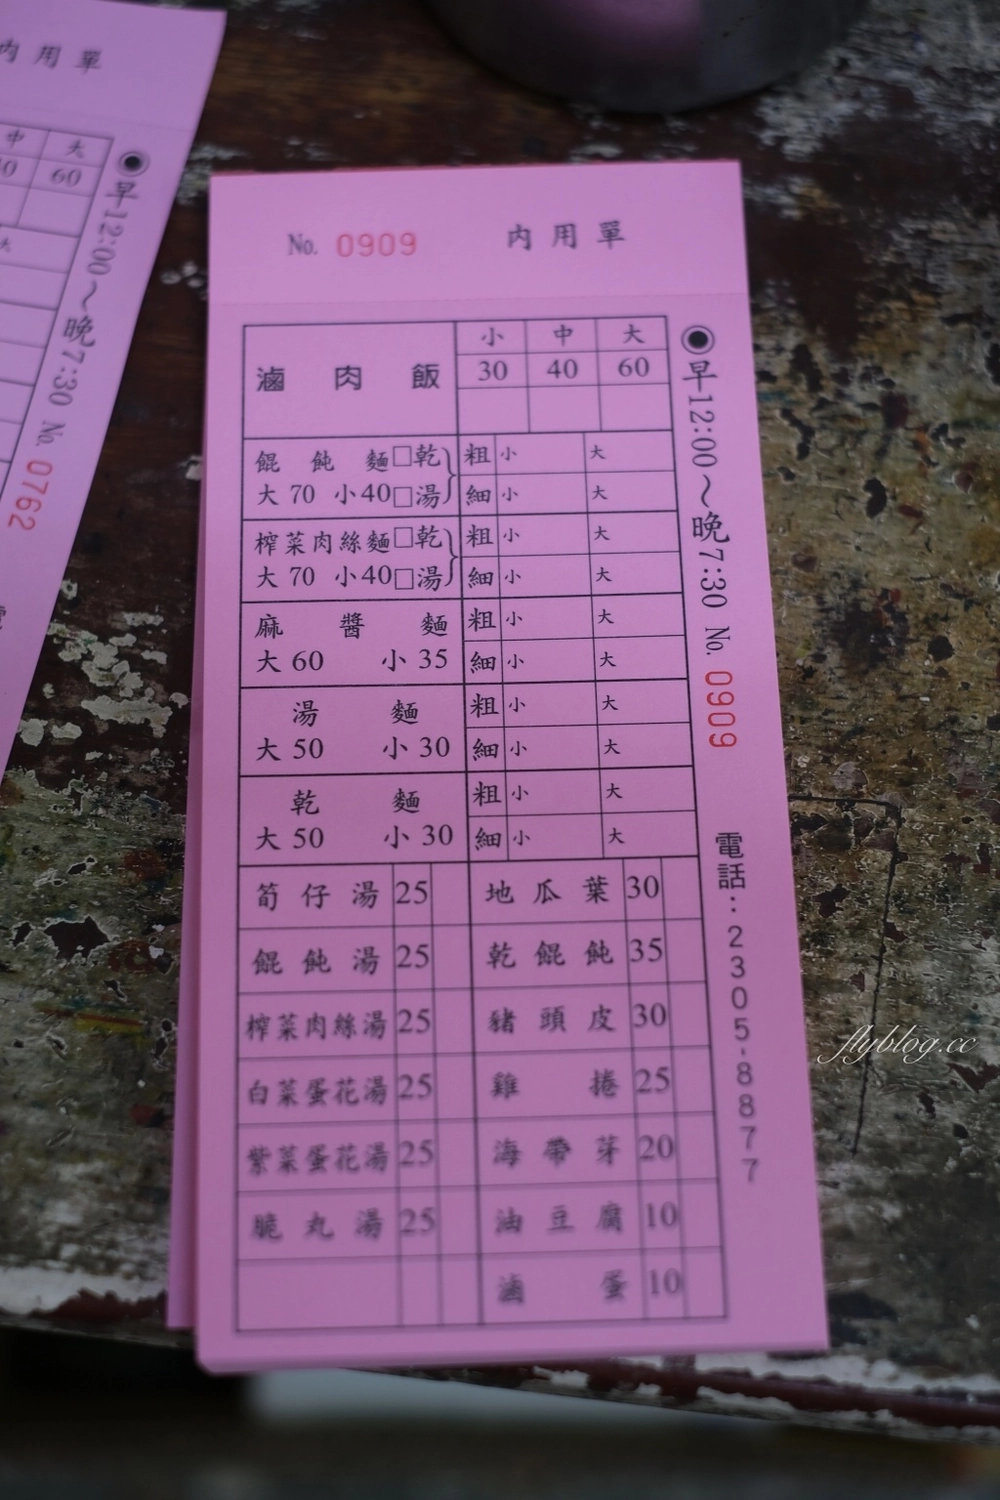 內用單
中 大
60
◉早12:00～晚7:30 No. 0762
No. 0909 內用單
滷肉飯 小 中 大
30 40 60
餛飩麵□乾 粗 小 大
大 70 小40□湯 細 小 大
榨菜肉絲麵□乾 粗 小 大
大 70 小40□湯 細 小 大
麻醬麵 粗 小 大
大 60 小 35 細 小 大
湯麵 粗 小 大
大 50 小 30 細 小 大
乾麵 粗 小 大
大 50 小 30 細 小 大
筍仔湯 25 地瓜葉 30
餛飩湯 25 乾餛飩 35
榨菜肉絲湯 25 豬頭皮 30
白菜蛋花湯 25 雞捲 25
紫菜蛋花湯 25 海帶芽 20
脆丸湯 25 油豆腐 10
滷蛋 10
◉早12:00～晚7:30 No. 0909
電話:2305-8877
flyblog.cc